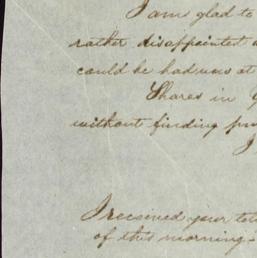 I am glad to
rather disappointed
could be had was at
Shares in
without finding
I
I received your
of this morning